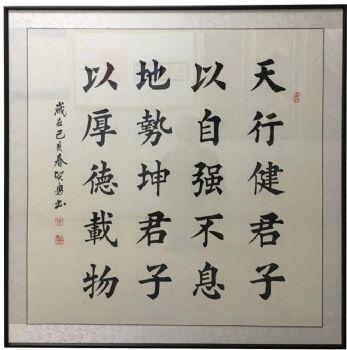 天行健君子
以自强不息
地勢坤君子
以厚德載物
歲在己亥春